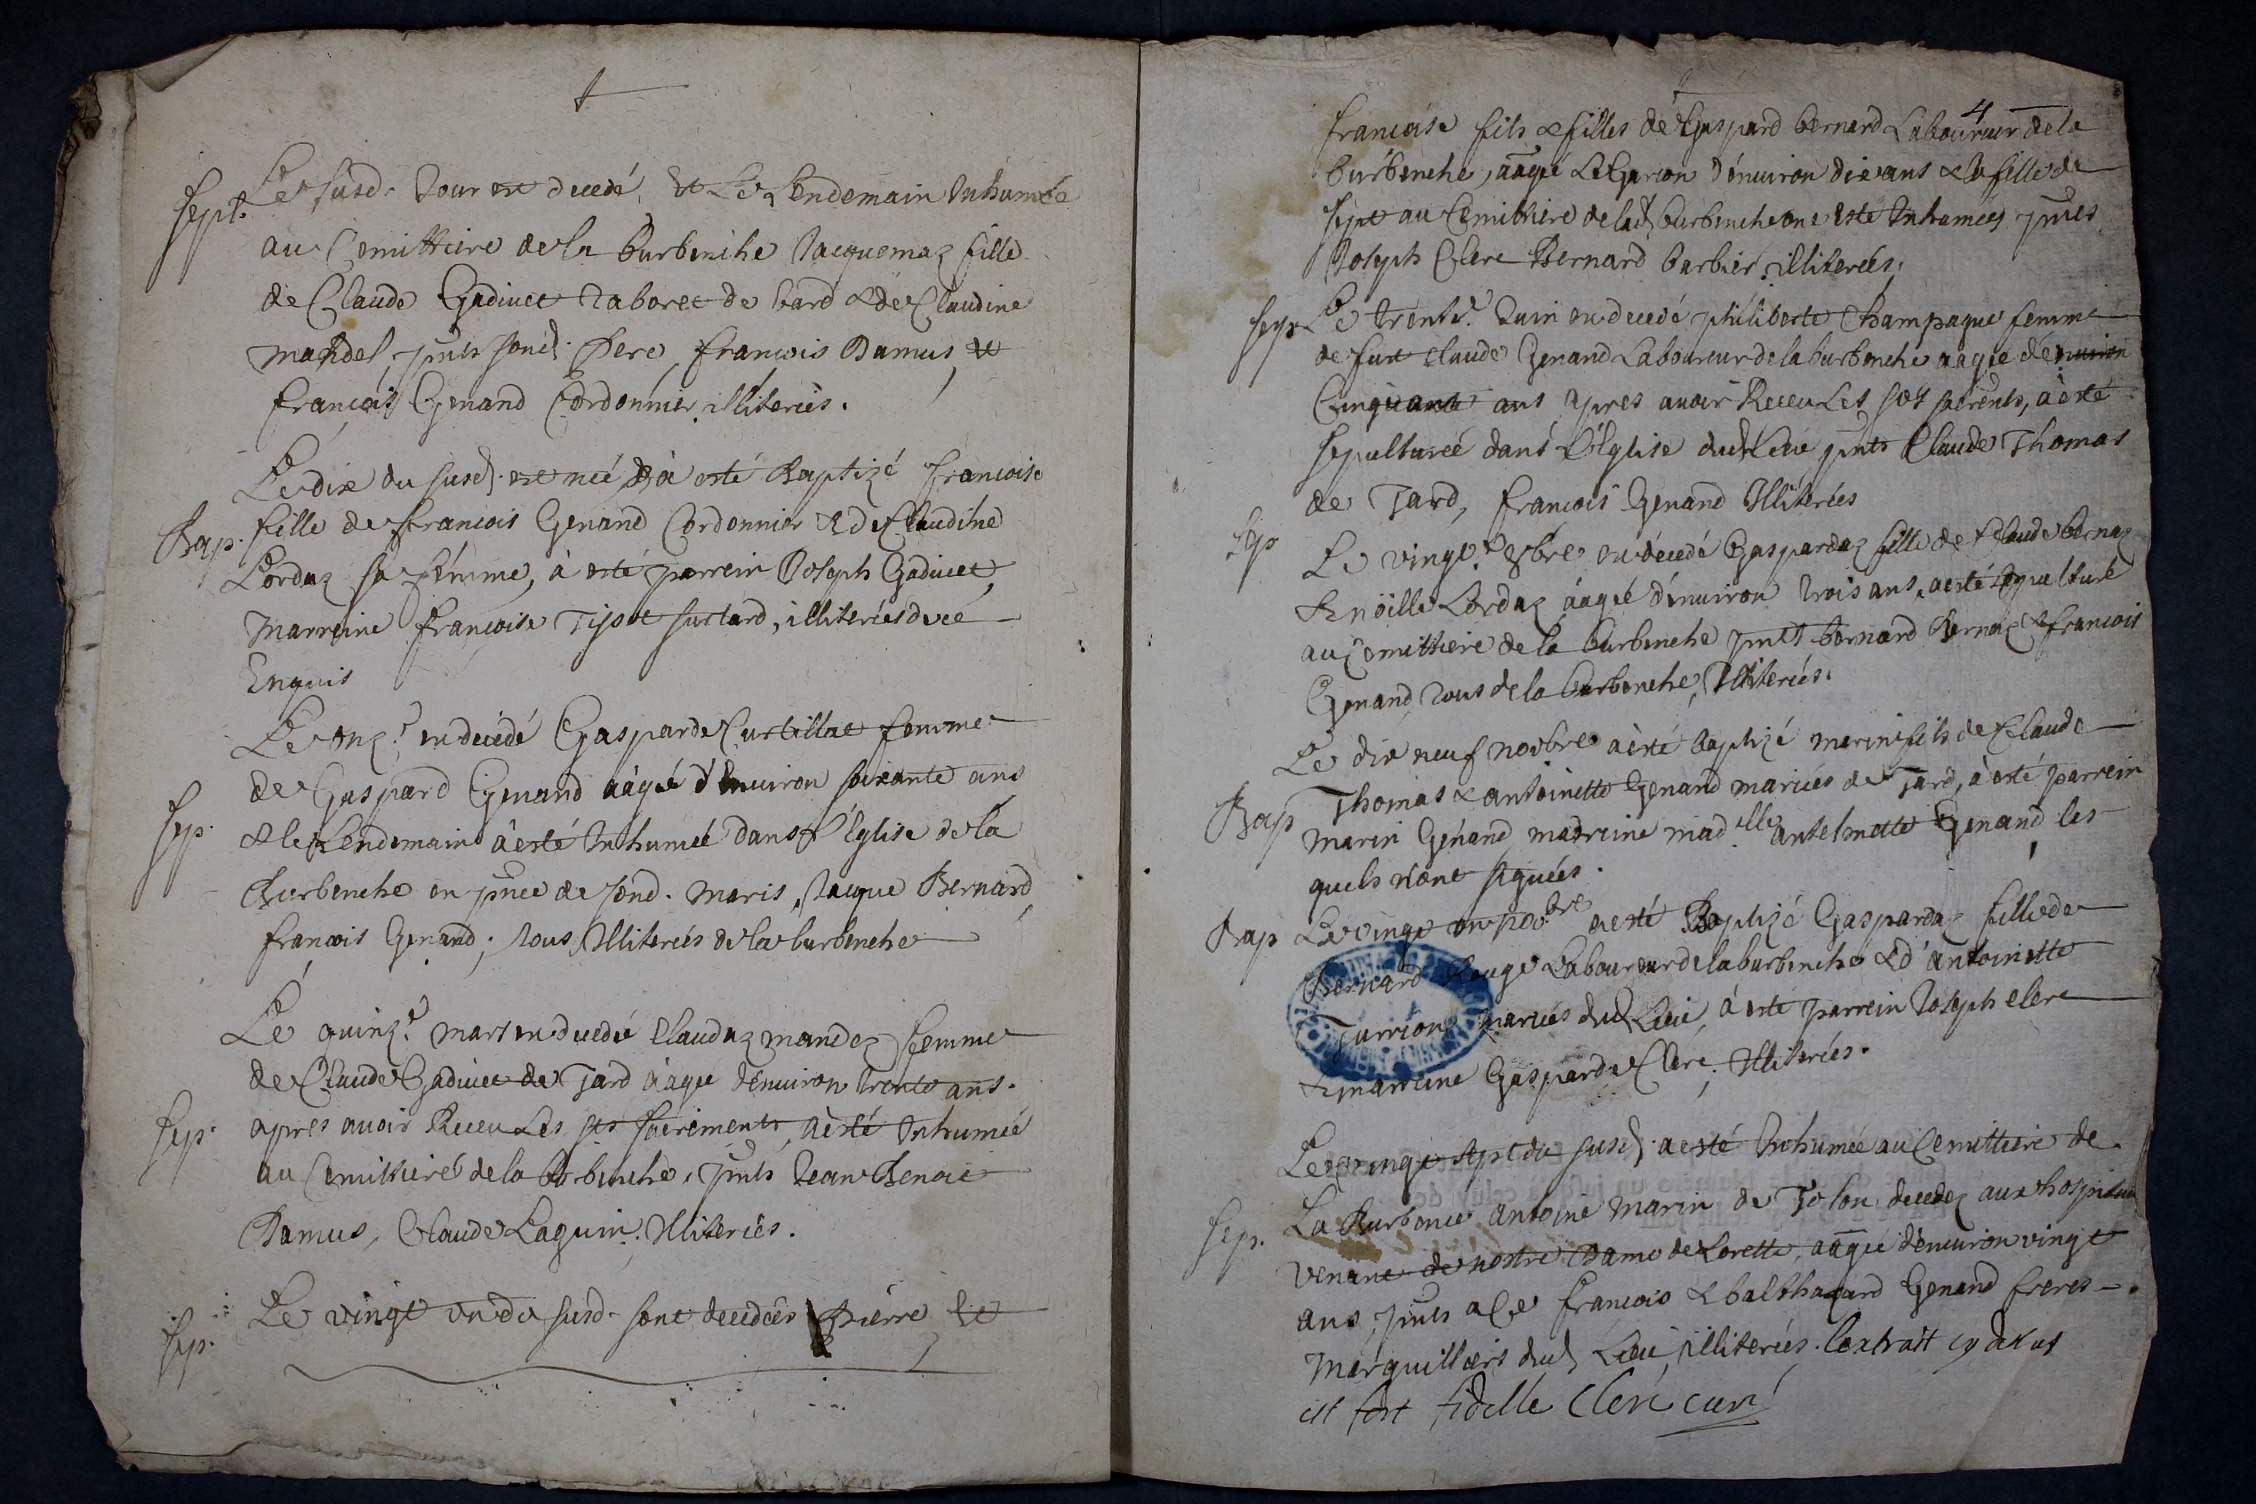 Sept.
Le susd. Jour est decedé, et Le Lendemain Inhumée
au Cemittiere de la burbenche Jacquemaz fille
de Claude Gadiuet Taboret de bard & de Claudine
mandel, pnts sond. Pere, francois Damus, et
francois Genand Cordonnier, illiteriés.
Le dix du susd. est née, & à esté Baptizé francoise
Bap. fille de francois Genand Cordonnier & de Claudine
Lordaz sa femme, à esté parrein Joseph Gadiuet,
Marreine francoise Tisot surtard, illiteriés de ce
Enquis
Le onz.e est decédé Gasparde Curtillat femme
de Gaspard Genand aàgée d'Enuiron soixante ans
Sep. & le Lendemain à esté Inhumée dans L'Eglise de la
Burbenche en pnce de sond. Maris, Jacque Bernard,
francois Genand; Tous Illiteriés de la burbenche
Le quinz.e mars est decedée Claudaz mandez femme
de Claude Gadiuet de Tard àagée d'enuiron Trente ans.
Sep. apres auoir Receu Les sts sacrements, à esté Inhumée
au Cemittiere de la burbenche, pnts Jean Benoit
Damus, Claude Laguin. Illiteriés.
Sep. Le vingt un du susd. sont decedées Pierre et
4
francoise fils & filles de Gaspard bernard Laboureur de la
burbenche, aàgé Le Garcon d'enuiron dix ans & la fille de
sept au Cemittiere de lad. burbenche ont esté Inhumées pnts
Joseph Clerc Bernard barbier, illiteriés;
Sep. Le trent.e Juin est decedé philiberte Champagne femme
de fut claude Genand Laboureur de la burbenche aagée d'enuiron
Cinquante ans apres auoir Receu Les sts sacrents, à esté
sepulturée dans L'Eglise dud. Lieu pnts Claude Thomas
de Tard, francois Genand Illiteriés
Sep Le vingt.e 8bre est décedé Gaspardaz fille de Claude bernaz
& noïlle Lordaz àagée d'enuiron Trois ans, a esté sepulturé
au Cemittiere de la burbenche pnts bernard Bernaz & francois
Genand Tous de la burbenche, Illiteriés.
Le dix neuf novbre à esté baptizé marin fils de Claude
Bap Thomas & antoinette Genand mariés de Tard, à esté parrein
marin Genand, marreine mad.elle antelmette Genand les
quels n'ont signées.
Bap Le vingt un nov.bre a esté Baptizé Gaspardaz fille de
Bernard Rouge Laboureur de la burbenche & d'antoinette
Turrion mariés dud. Lieu, à esté parrein Joseph clerc
& marreine Gasparde Clerc; Illiteriés.
Le vingt sept du susd. a esté Inhumée au Cemittiere de
Sep. La Burbence antoine marin de Tolon decedez aux hospitau
venant de nostre Dame de Lorette, aàgée d'enuiron vingt
ans, pnts a Ce francois & balthazard Genand freres
Marguilliers dud. Lieu, illiteriés. L'extrait cy
est fort fidelle Clerc curé